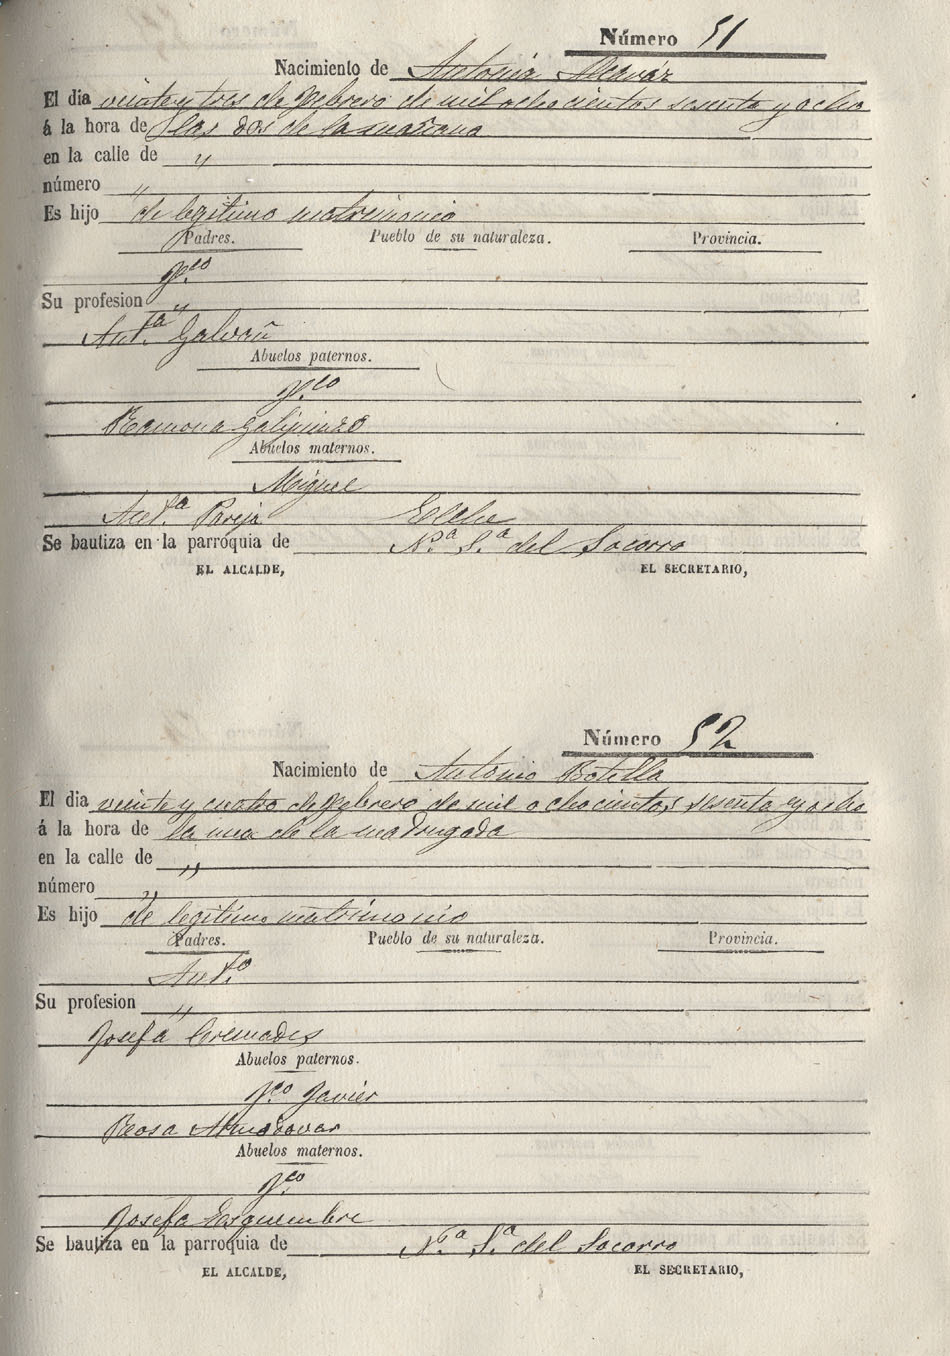 Número 51
Nacimiento de Antonia
El dia veinte y tres de Febrero de mil ochocientos sesenta y ocho
á la hora de las dos de la mañana
en la calle de „
número „
Es hijo de legitimo matrimonio
Padres. Pueblo de su naturaleza. Provincia.
Fco
Su profesion „
Anta. Galvañ
Abuelos paternos.
Fco
Ramona
Abuelos maternos.
Miguel
Anta. Pareja Elche
Se bautiza en la parróquia de Na. Sa. del Socorro
EL ALCALDE, EL SECRETARIO,
Número 52
Nacimiento de Antonio Botella
El dia veinte y cuatro de Febrero de mil ochocientos sesenta y ocho
á la hora de la una de la madrugada
en la calle de „
número „
Es hijo de legitimo matrimonio
Padres. Pueblo de su naturaleza. Provincia.
Anto.
Su profesion „
Josefa Cremades
Abuelos paternos.
Fco Javier
Rosa Almodovar
Abuelos maternos.
Fco
Josefa Esquembre
Se bautiza en la parroquia de Na. Sa. del Socorro
EL ALCALDE, EL SECRETARIO,